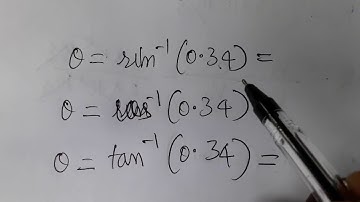 θ = sin⁻¹(0.34) =
θ = cos⁻¹(0.34)
θ = tan⁻¹(0.34) =